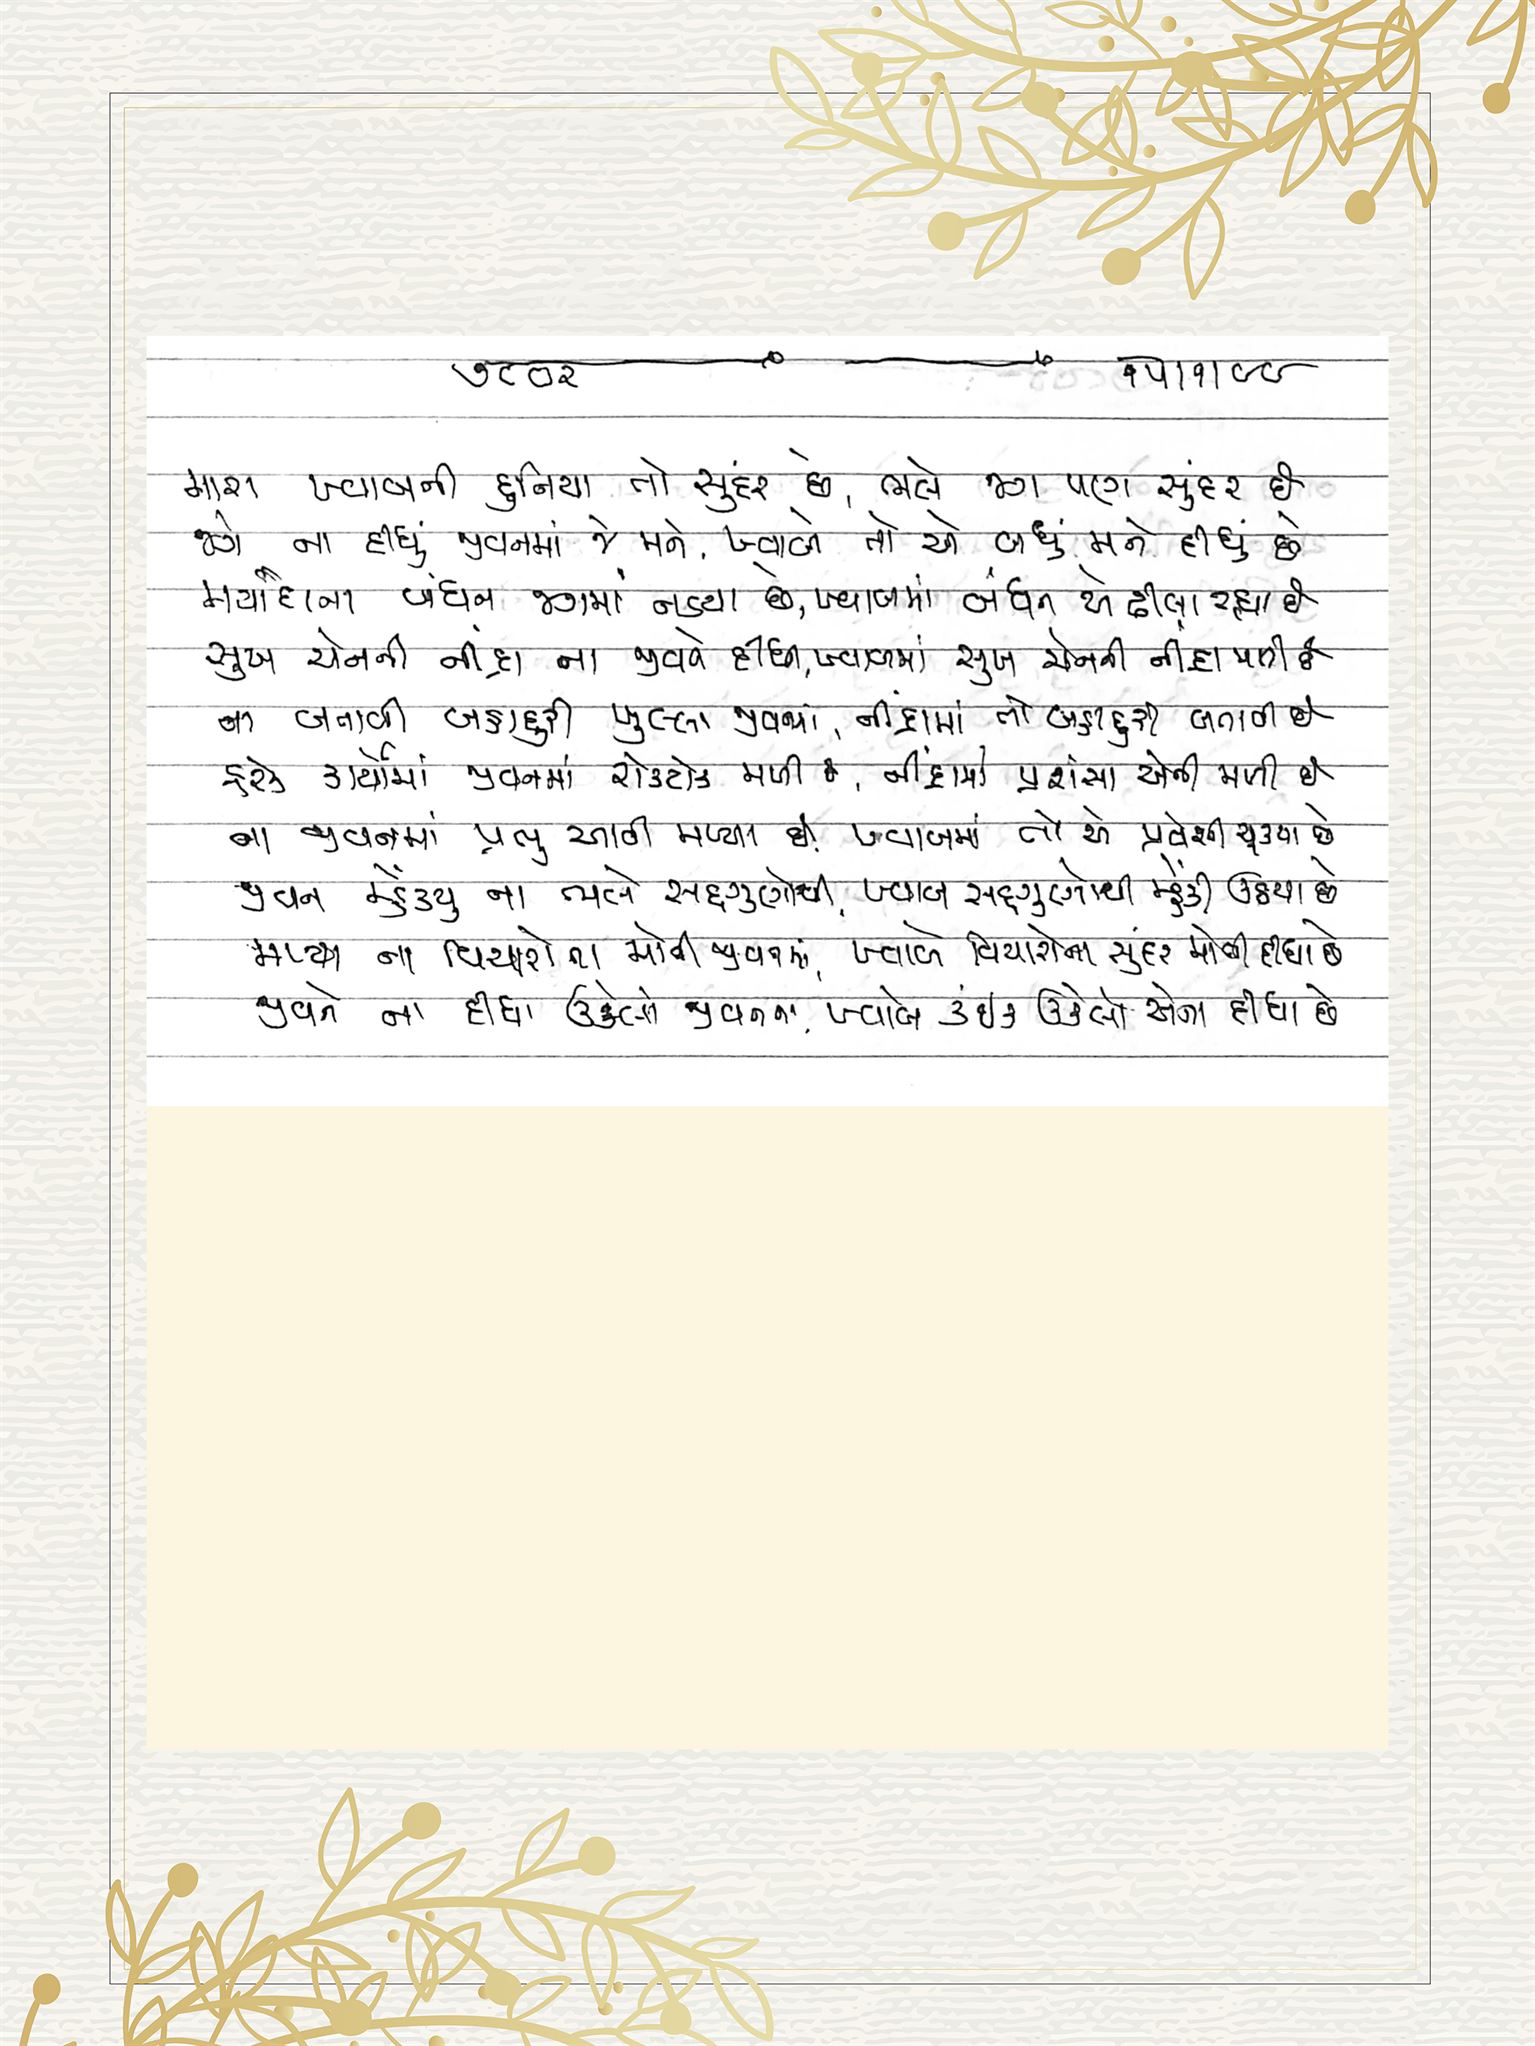 ૭૮૦૨ ૧૫|૧|૯૯
મારા ખ્વાબની દુનિયા તો સુંદર છે, ભલે જગ પણ સુંદર છે
જગે ના દીધું જીવનમાં જે મને, ખ્વાબે તો એ બધું મને દીધું છે
મર્યાદાના બંધન જગમાં નડયા છે, ખ્વાબમાં બંધન એ ઢીલા રહ્યા છે
સુખ ચેનની નીંદ્રા ના જીવને દીધી, ખ્વાબમાં સુખ ચેનની નીંદ્રા મળી છે
ના બતાવી બહાદુરી ખુલ્લા જીવનમાં, નીંદ્રામાં તો બહાદુરી બતાવી છે
હરેક કાર્યોમાં જીવનમાં રોકટોક મળી છે, નીંદ્રામાં પ્રશંસા એની મળી છે
ના જીવનમાં પ્રભુ આવી મળ્યા છે, ખ્વાબમાં તો એ પ્રવેશી ચૂક્યા છે
જીવન મ્હેંક્યુ ના ભલે સદ્દગુણોથી, ખ્વાબ સદ્દગુણોથી મ્હેંકી ઉઠયા છે
મળ્યા ના વિચારોના મોતી જીવનમાં, ખ્વાબે વિચારોના સુંદર મોતી દીધા છે
જીવને ના દીધા ઉકેલો જીવનના, ખ્વાબે કંઈક ઉકેલો એના દીધા છે